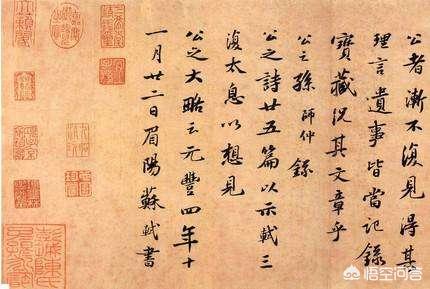 公者漸不復見得其
理言遺事皆當記錄
寶藏況其文章乎
公之孫師仲錄
公之詩廿五篇以示軾三
復太息以想見
公之大略云元豐四年十
一月廿二日眉陽蘇軾書
悟空问答